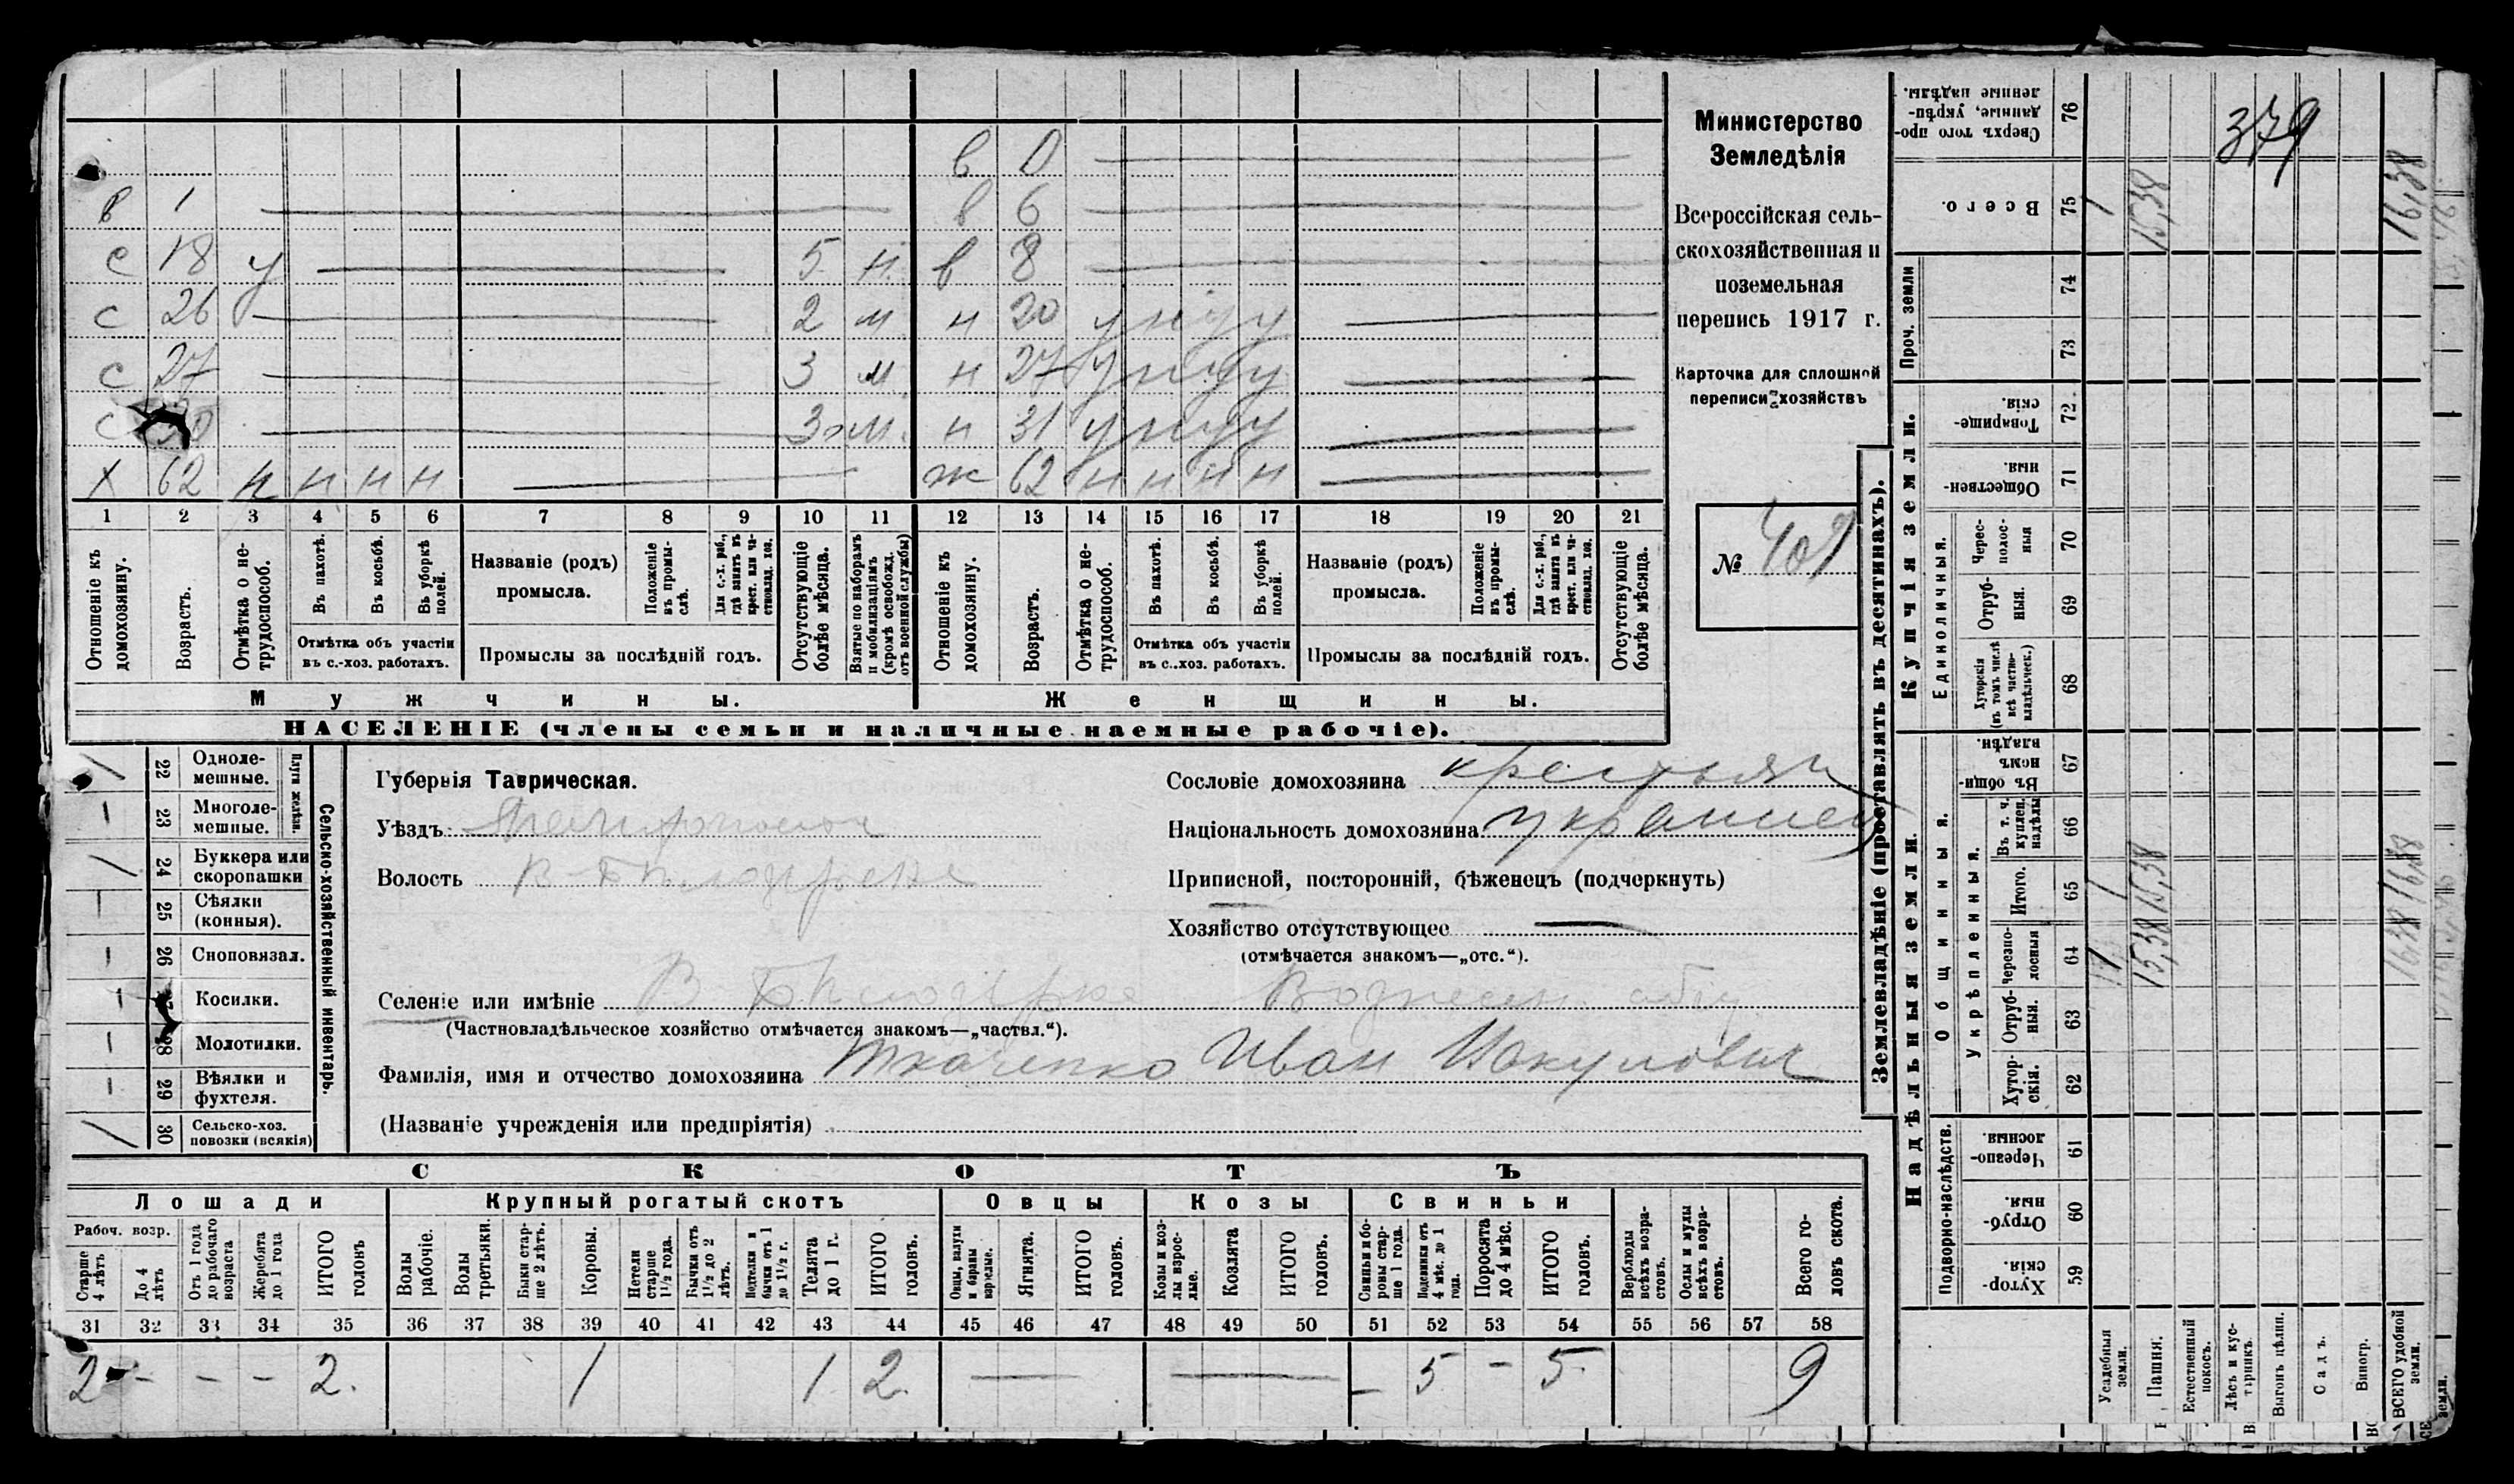 в 0
в 1 в 6
с 18 у 5 н. в 8
с 26 2 м н 20 у н у у
с 27 3 м н 27 у н у у
с 30 3 м. н 31 у н у у
х 62 н н н н ж 62 н н н н
1 2 3 4 5 6 7 8 9 10 11 12 13 14 15 16 17 18 19 20 21
Отношеніе къ домохозяину.
Возрастъ.
Отмѣтка о не-
трудоспособ.
Въ пахотѣ.
Въ косьбѣ.
Въ уборкѣ полей.
Отмѣтка объ участіи
въ с.-хоз. работахъ.
Названіе (родъ)
промысла.
Положеніе въ промы-
слѣ.
Для с.-х. раб., гдѣ занятъ въ крест. или ча-
стновлад. хоз.
Промыслы за послѣдній годъ.
Отсутствующіе болѣе мѣсяца.
Взятые по наборамъ и мобилизаціямъ (кромѣ освобожд. отъ военной службы)
Отношеніе къ домохозяину.
Возрастъ.
Отмѣтка о не-
трудоспособ.
Въ пахотѣ.
Въ косьбѣ.
Въ уборкѣ полей.
Отмѣтка объ участіи
въ с.-хоз. работахъ.
Названіе (родъ)
промысла.
Положеніе въ промы-
слѣ.
Для с.-х. раб., гдѣ занята въ крест. или ча-
стновлад. хоз.
Промыслы за послѣдній годъ.
Отсутствующіе болѣе мѣсяца.
Мужчины. Женщины.
НАСЕЛЕНІЕ (члены семьи и наличные наемные рабочіе).
Министерство
Земледѣлія
Всероссійская сель-
скохозяйственная и
поземельная
перепись 1917 г.
Карточка для сплошной
переписи хозяйствъ
№ 409
22 Одноле-
мешные.
23 Многоле-
мешные.
Плуги желѣзн.
24 Буккера или
скоропашки
25 Сѣялки
(конныя).
26 Сноповязал.
Косилки.
28 Молотилки.
29 Вѣялки и
фухтеля.
30 Сельско-хоз.
повозки (всякія)
Сельско-хозяйственный инвентарь.
Губернія Таврическая.
Уѣздъ
Волость В-Бѣлозерка
Сословіе домохозяина крестьян
Національность домохозяина украинец
Приписной, посторонній, бѣженецъ (подчеркнуть)
Хозяйство отсутствующее —
(отмѣчается знакомъ—„отс.“).
Селеніе или имѣніе В-Бѣлозерка
(Частновладѣльческое хозяйство отмѣчается знакомъ—„частвл.“).
Фамилія, имя и отчество домохозяина Ткаченко Иван
(Названіе учрежденія или предпріятія)
СКОТЪ
Лошади Крупный рогатый скотъ Овцы Козы Свиньи
Рабоч. возр.
Старше 4 лѣтъ
До 4 лѣтъ
Отъ 1 года до рабочаго возраста
Жеребята до 1 года
ИТОГО головъ
Волы рабочіе.
Волы третьяки.
Быки стар-
ше 2 лѣтъ.
Коровы.
Нетели старше 1½ года.
Бычки отъ 1½ до 2 лѣтъ.
Подтелки и бычки отъ 1 до 1½ г.
Телята до 1 г.
ИТОГО головъ.
Овцы, валухи и бараны взрослые.
Ягнята.
ИТОГО головъ.
Козы и коз-
лы взрос-
лые.
Козлята
ИТОГО головъ.
Свиньи и бо-
ровы стар-
ше 1 года.
Подсвинки отъ 4 мѣс. до 1 года.
Поросята до 4 мѣс.
ИТОГО головъ.
Верблюды всѣхъ возра-
стовъ.
Ослы и мулы всѣхъ возра-
стовъ.
Всего го-
ловъ скота.
31 32 33 34 35 36 37 38 39 40 41 42 43 44 45 46 47 48 49 50 51 52 53 54 55 56 57 58
2 - - - 2. 1 1 2. — — - 5 - 5. 9
Землевладѣніе (проставлять въ десятинахъ).
Купчія земли.
Надѣльныя земли.
Сверхъ того про-
данные, укрѣп-
ленные надѣлы. 76
379
Всего. 75 1 15,38 16,38
Проч. земли 74 73
Товарище-
скія. 72
Обществен-
ныя. 71
Единоличныя.
Черес-
полос-
ныя 70
Отруб-
ныя. 69
Хуторскія (въ томъ числѣ всѣ частно-
владѣльческ.) 68
Общинныя.
Въ общин-
номъ владѣн. 67
Укрѣпленныя.
Въ т. ч. куплен. надѣлы 66
Итого. 65 1 15,38 16,38
Черезпо-
лосныя 64 1 15,38 16,38
Отруб-
ныя. 63
Хутор-
скія. 62
Подворно-наслѣдств.
Черезпо-
лосныя. 61
Отруб-
ныя. 60
Хутор-
скія. 59
Усадебныя земли.
Пашня.
Естественный покосъ.
Лѣсъ и кус-
тарникъ.
Выгонъ цѣлин.
Садъ.
Виногр.
ВСЕГО удобной земли.